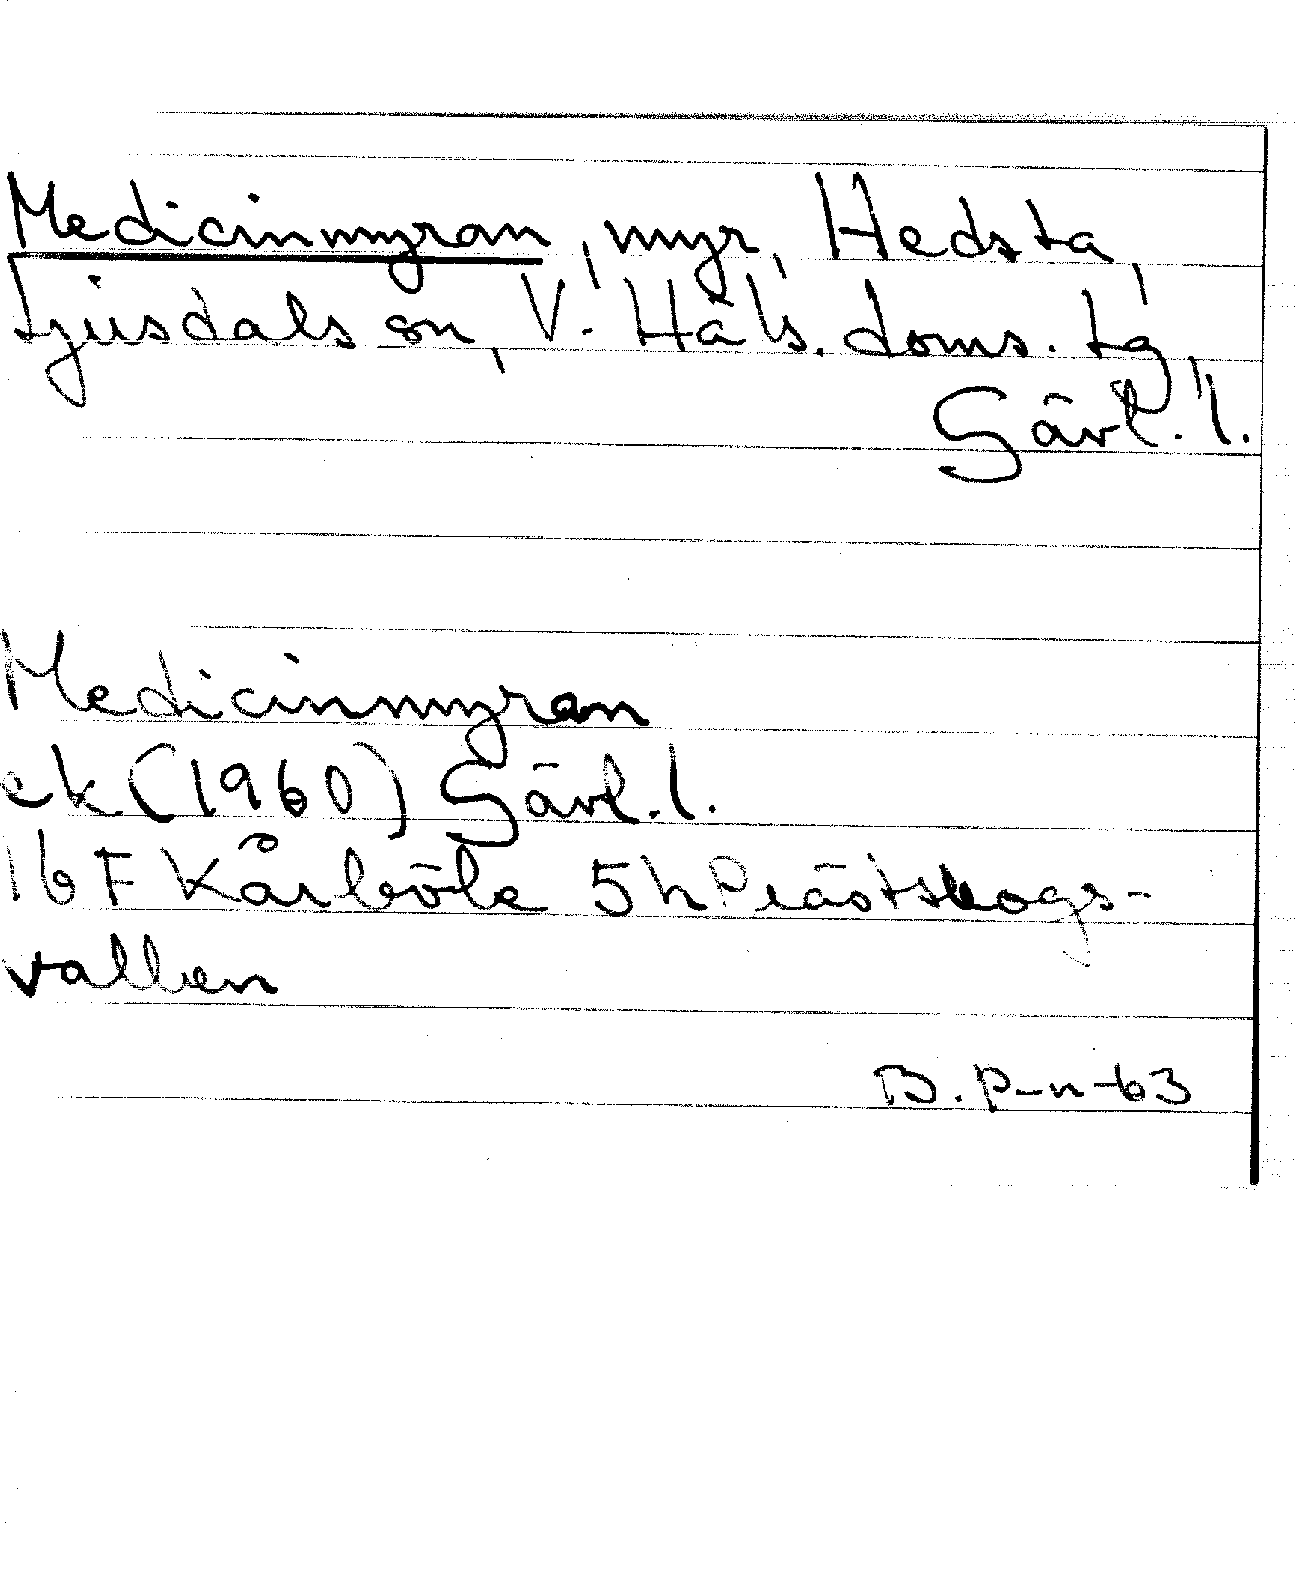 Medicinmyran, myr, Hedsta,
Ljusdals sn, V. Häls. doms. tg,
Gävl. l.
Medicinmyran
ek (1960) Gävl. l.
16 F Kårböle 5h Prästskogs-
vallen
B. P-n-63